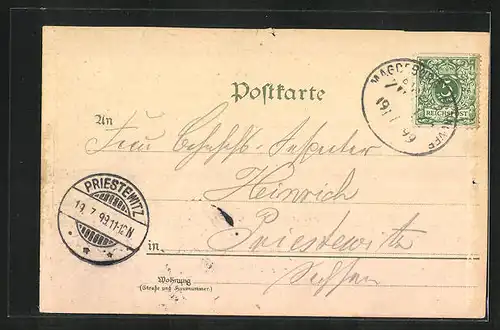 Postkarte
MAGDEBURG
19. 7. 99
REICHSPOST
An
Frau Bahnhofs-Inspektor
Heinrich
PRIESTEWITZ
19.7.99.11-12N
* * *
in Priestewitz
Sachsen
Wohnung
(Straße und Hausnummer)